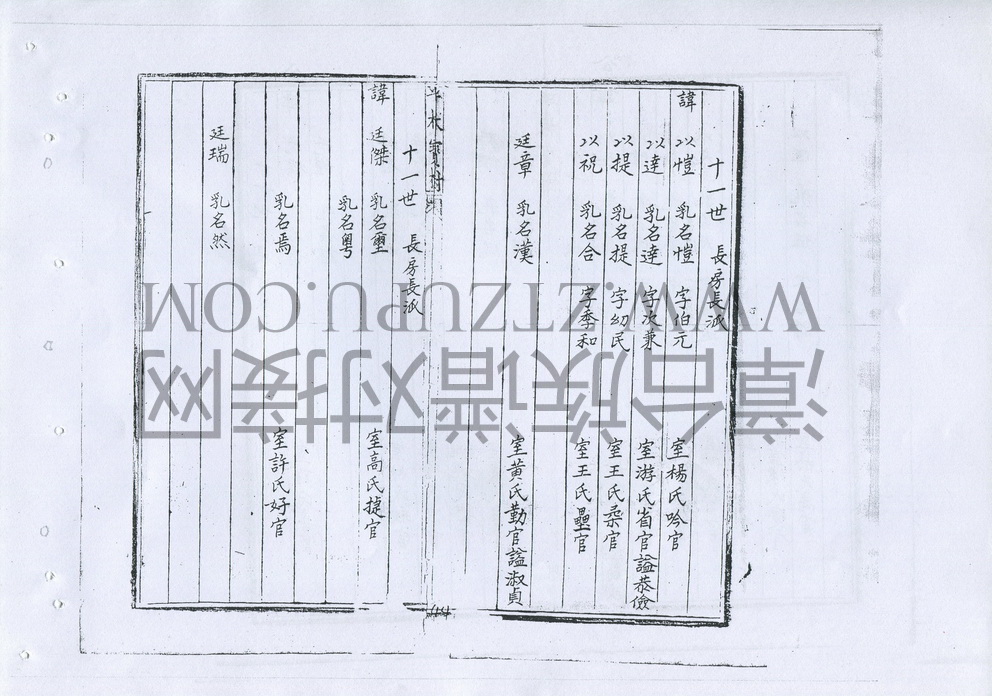 十一世 長房長派
諱 以愷 乳名愷 字伯元 室楊氏吟官
以達 乳名達 字次兼 室游氏省官謚恭儉
以提 乳名提 字幼民 室王氏桑官
以祝 乳名合 字季和 室王氏壘官
廷章 乳名漢 室黃氏勤官謚淑貞
十一世 長房長派
諱 廷傑 乳名璽 室高氏捷官
乳名粵
乳名焉 室許氏好官
廷瑞 乳名然
WWW.ZTZUPU.COM
漳台族谱对接网